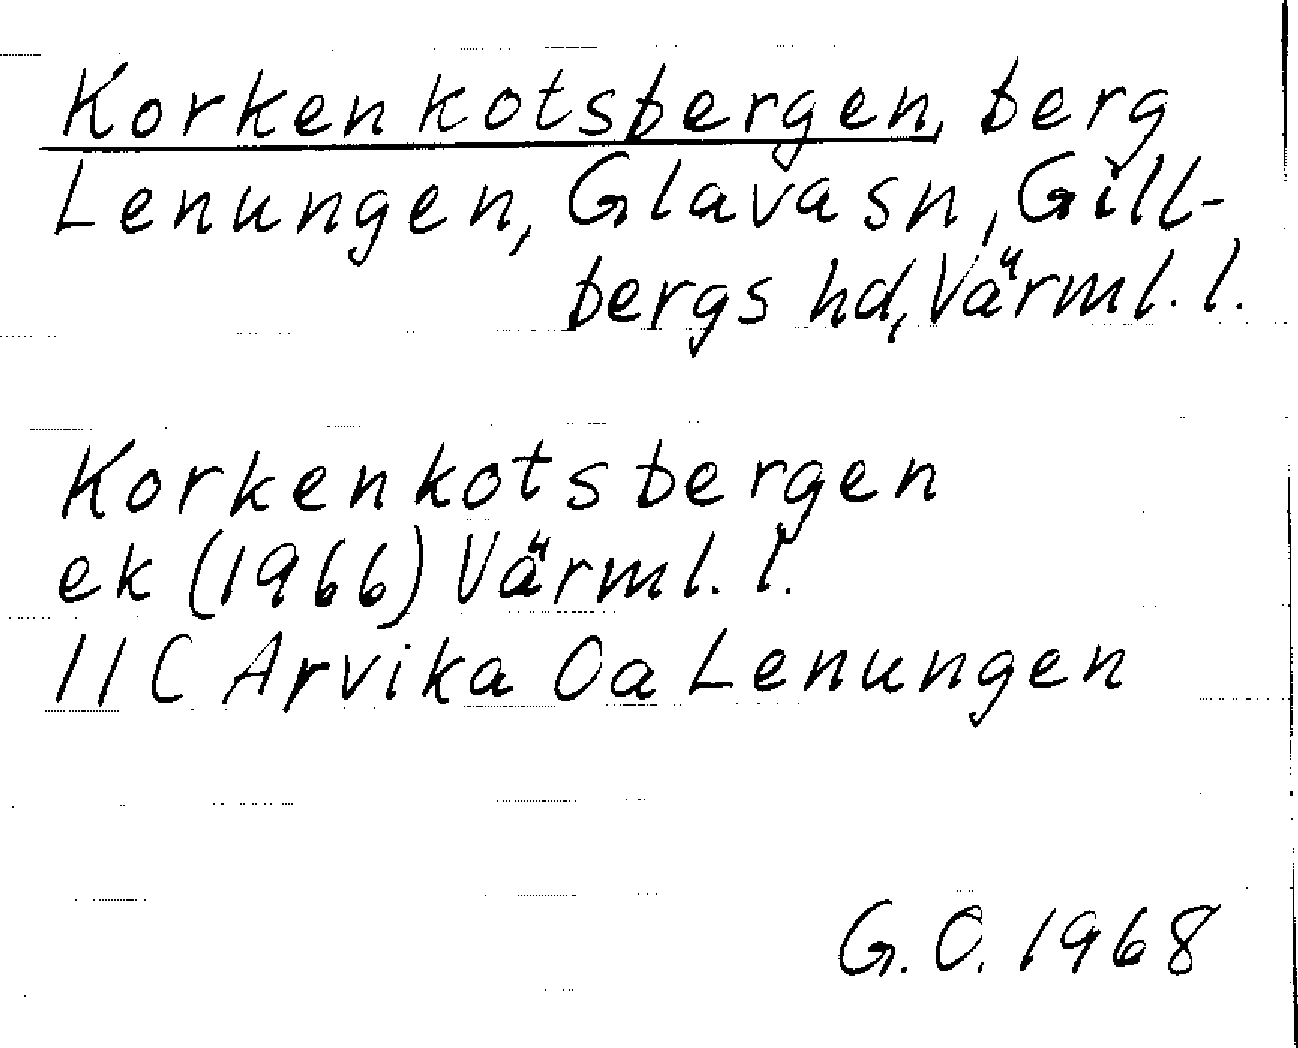 Korkenkotsbergen, berg
Lenungen, Glava sn, Gill-
bergs hd, Värml. l.
Korkenkotsbergen
ek (1966) Värml. l.
11C Arvika Oa Lenungen
G.O. 1968